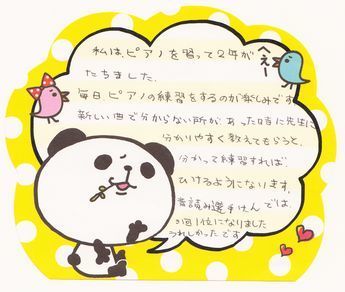 へぇー
私は、ピアノを習って2年が
たちました。
毎日、ピアノの練習をするのが楽しみです
新しい曲で分からない所が、あった時に先生に
分かりやすく教えてもらうと、
分かって練習すれば、
ひけるようになります。
音読み選手けんでは、
1位になりました
うれしかったです